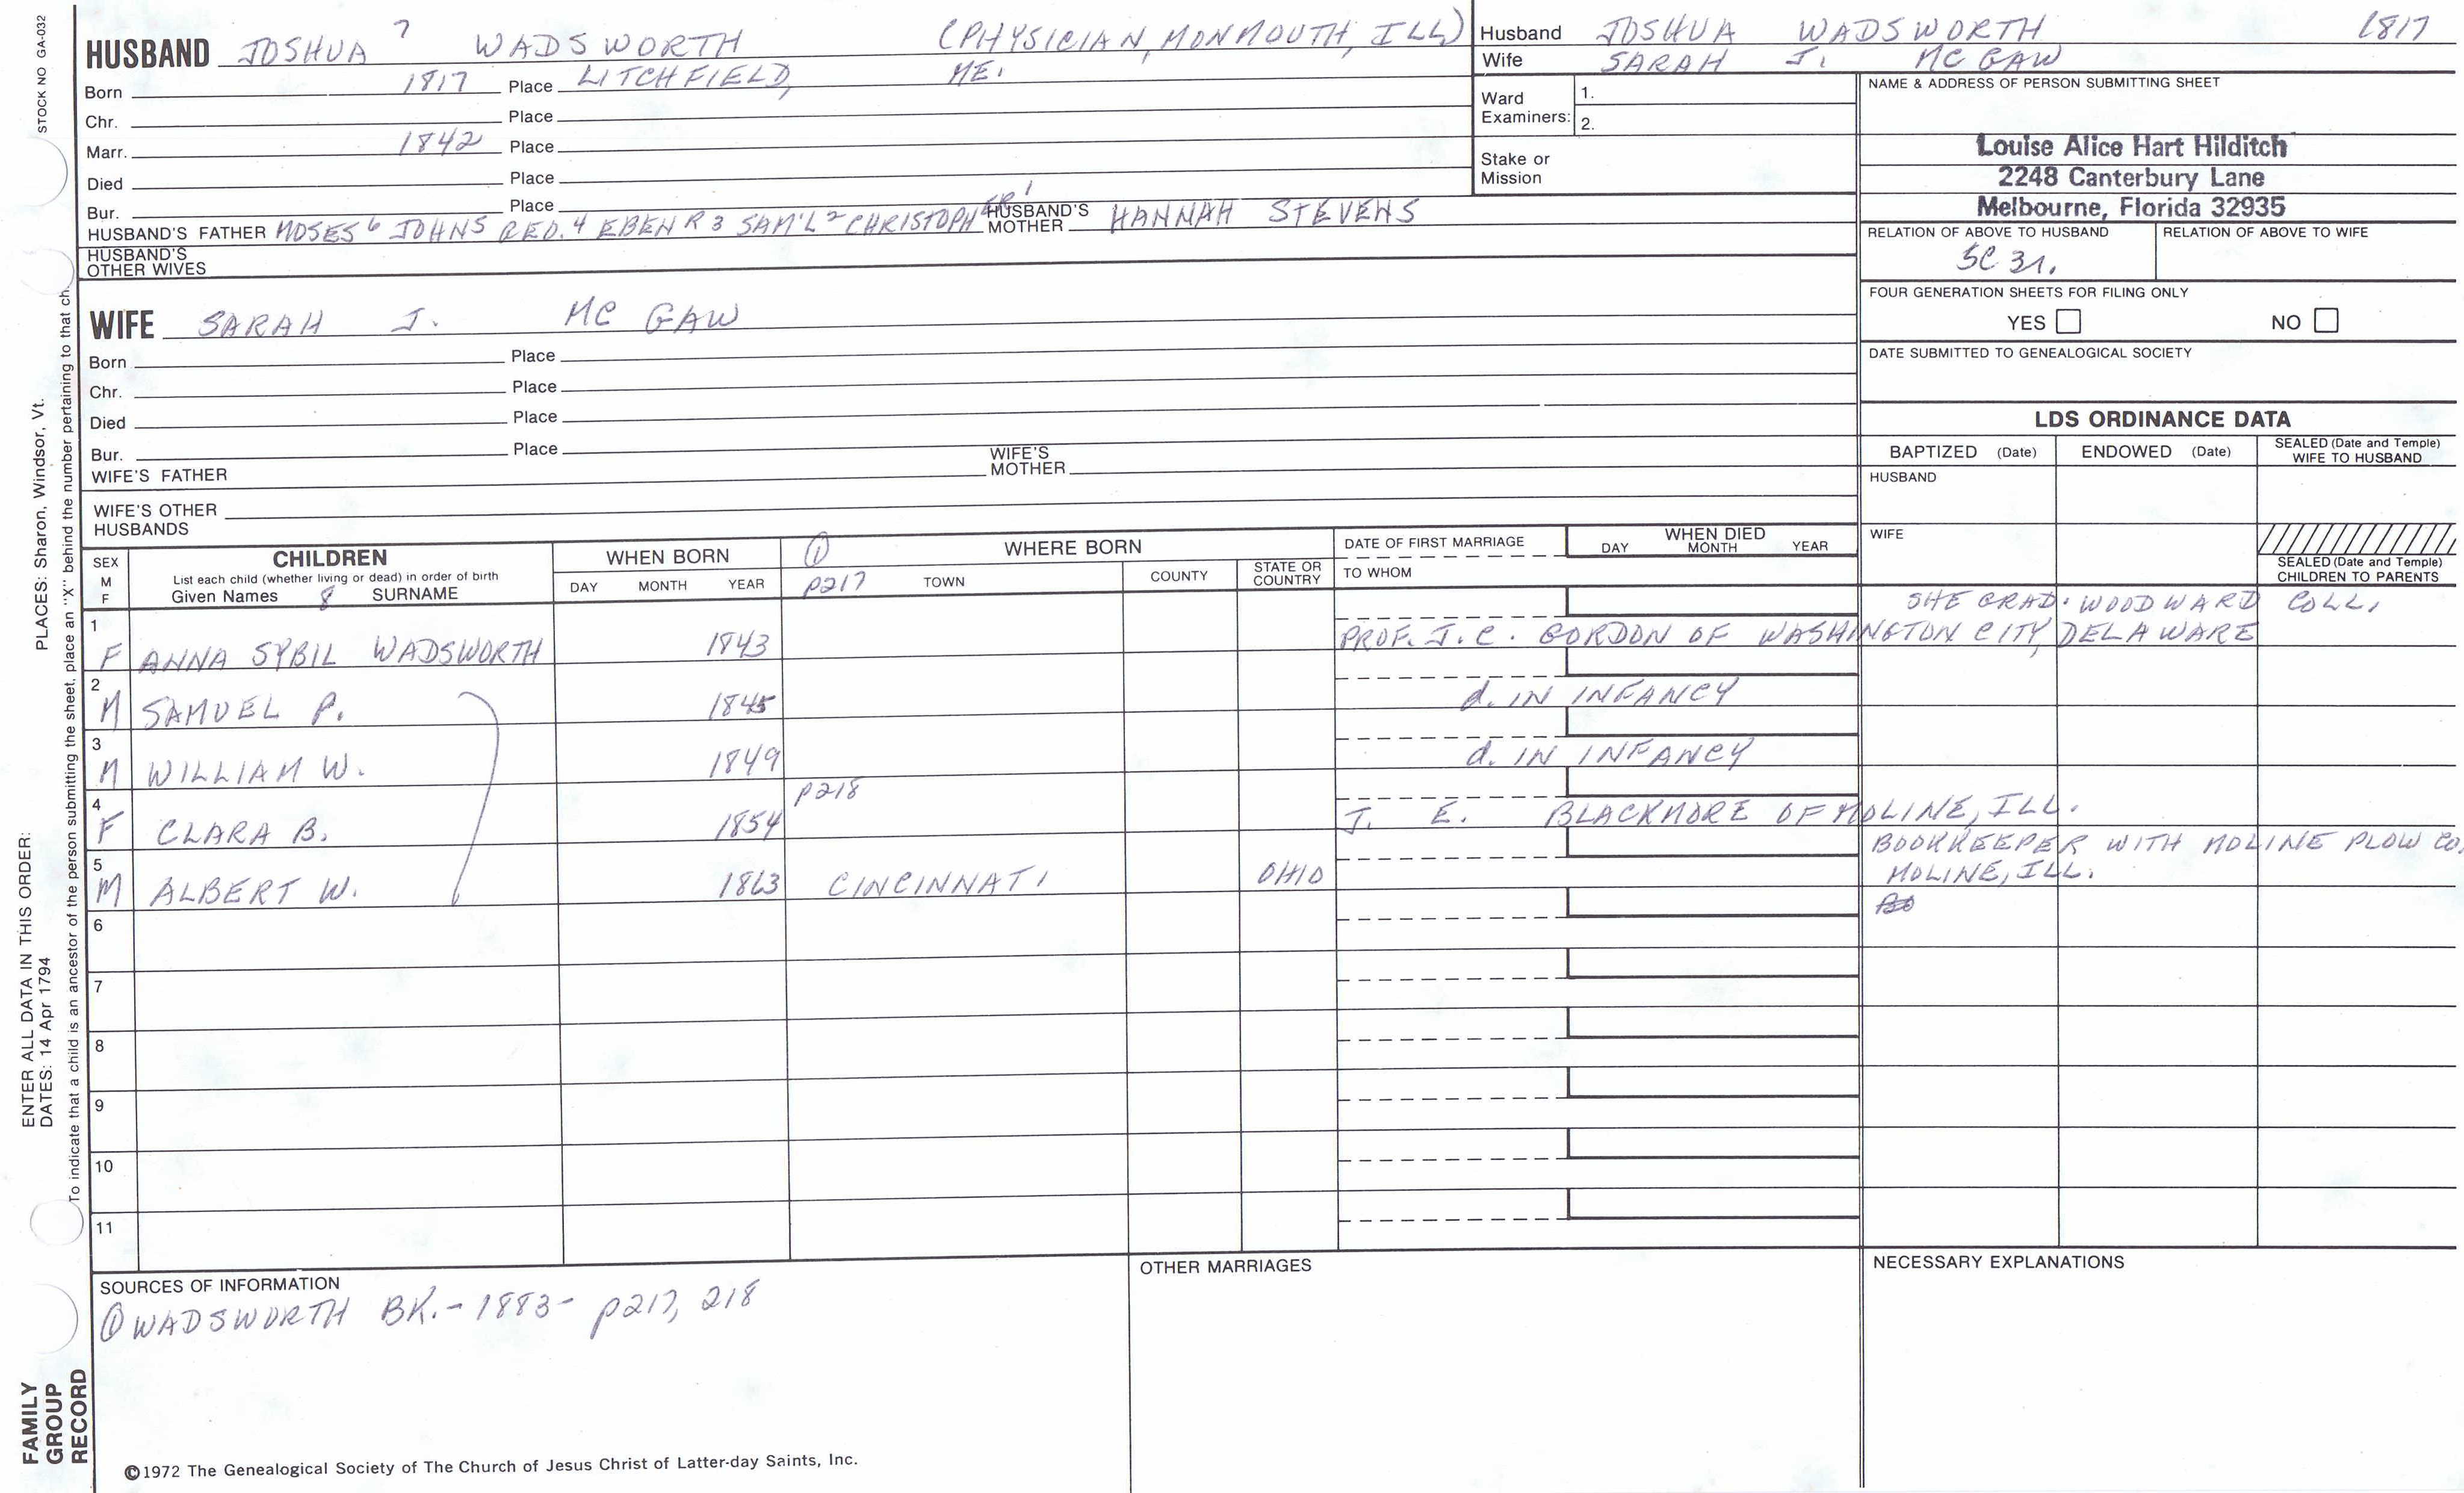 STOCK NO GA-032
HUSBAND JOSHUA 7 WADSWORTH (PHYSICIAN, MONMOUTH, ILL)
Born 1817 Place LITCHFIELD, ME.
Chr. Place
Marr. 1842 Place
Died Place
Bur. Place
HUSBAND'S FATHER MOSES 6 JOHN 5 RED. 4 EBENR 3 SAM'L 2 CHRISTOPHER 1 HUSBAND'S MOTHER HANNAH STEVENS
HUSBAND'S OTHER WIVES
WIFE SARAH J. MC GAW
Born Place
Chr. Place
Died Place
Bur. Place
WIFE'S FATHER WIFE'S MOTHER
WIFE'S OTHER HUSBANDS
Husband JOSHUA WADSWORTH 1817
Wife SARAH J. MC GAW
Ward Examiners: 1.
2.
Stake or Mission
NAME & ADDRESS OF PERSON SUBMITTING SHEET
Louise Alice Hart Hilditch
2248 Canterbury Lane
Melbourne, Florida 32935
RELATION OF ABOVE TO HUSBAND RELATION OF ABOVE TO WIFE
5C 3r.
FOUR GENERATION SHEETS FOR FILING ONLY
YES NO
DATE SUBMITTED TO GENEALOGICAL SOCIETY
LDS ORDINANCE DATA
BAPTIZED (Date) ENDOWED (Date) SEALED (Date and Temple) WIFE TO HUSBAND
HUSBAND
WIFE
SEALED (Date and Temple) CHILDREN TO PARENTS
SEX M F CHILDREN WHEN BORN ① WHERE BORN DATE OF FIRST MARRIAGE WHEN DIED
List each child (whether living or dead) in order of birth
Given Names 8 SURNAME DAY MONTH YEAR p217 TOWN COUNTY STATE OR COUNTRY TO WHOM DAY MONTH YEAR
SHE GRAD. WOODWARD COLL.
1 F ANNA SYBIL WADSWORTH 1843 PROF. J.C. GORDON OF WASHINGTON CITY, DELAWARE
2 M SAMUEL P. 1845 d. IN INFANCY
3 M WILLIAM W. 1849 d. IN INFANCY
p218
4 F CLARA B. 1854 J. E. BLACKMORE OF MOLINE, ILL.
BOOKKEEPER WITH MOLINE PLOW CO.
5 M ALBERT W. 1863 CINCINNATI OHIO MOLINE, ILL.
6
7
8
9
10
11
SOURCES OF INFORMATION
① WADSWORTH BK. - 1883 - p217, 218
OTHER MARRIAGES
NECESSARY EXPLANATIONS
©1972 The Genealogical Society of The Church of Jesus Christ of Latter-day Saints, Inc.
ENTER ALL DATA IN THIS ORDER:
DATES: 14 Apr 1794 PLACES: Sharon, Windsor, Vt.
To indicate that a child is an ancestor of the person submitting the sheet, place an "X" behind the number pertaining to that ch
FAMILY
GROUP
RECORD